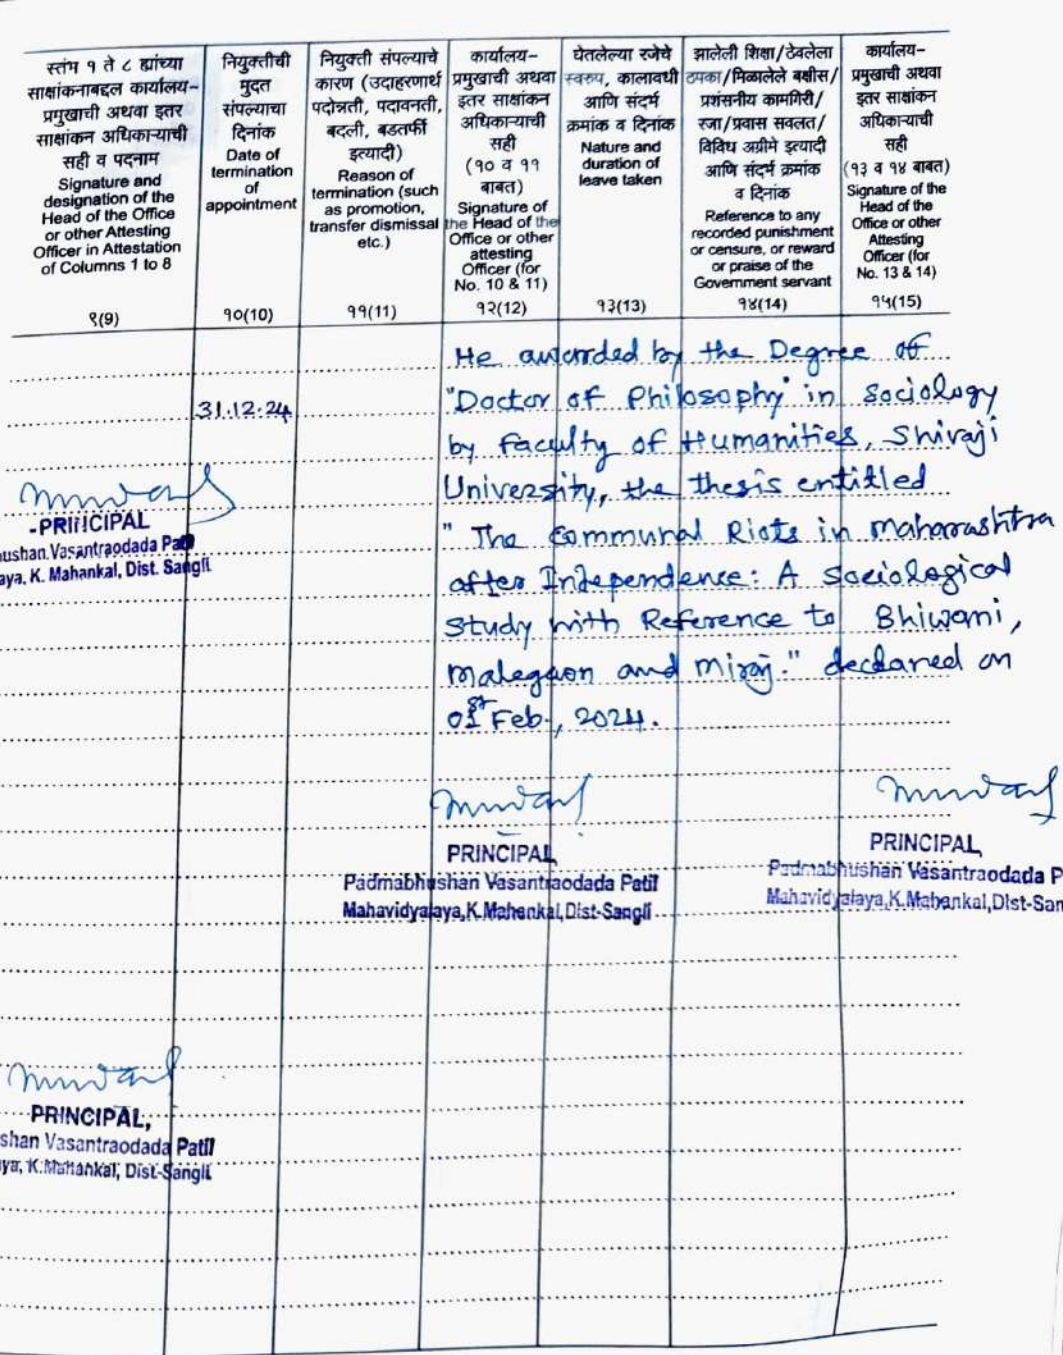 स्तंभ १ ते ८ ह्यांच्या
साक्षांकनाबद्दल कार्यालय-
प्रमुखाची अथवा इतर
साक्षांकन अधिकाऱ्याची
सही व पदनाम
Signature and
designation of the
Head of the Office
or other Attesting
Officer in Attestation
of Columns 1 to 8
९(9)
नियुक्तीची
मुदत
संपल्याचा
दिनांक
Date of
termination
of
appointment
१०(10)
नियुक्ती संपल्याचे
कारण (उदाहरणार्थ
पदोन्नती, पदावनती,
बदली, बडतर्फी
इत्यादी)
Reason of
termination (such
as promotion,
transfer dismissal
etc.)
११(11)
कार्यालय-
प्रमुखाची अथवा
इतर साक्षांकन
अधिकाऱ्याची
सही
(१० व ११
बाबत)
Signature of
the Head of the
Office or other
attesting
Officer (for
No. 10 & 11)
१२(12)
घेतलेल्या रजेचे
स्वरुप, कालावधी
आणि संदर्भ
क्रमांक व दिनांक
Nature and
duration of
leave taken
१३(13)
झालेली शिक्षा/ठेवलेला
ठपका/मिळालेले बक्षीस/
प्रशंसनीय कामगिरी/
रजा/प्रवास सवलत/
विविध अग्रीमे इत्यादी
आणि संदर्भ क्रमांक
व दिनांक
Reference to any
recorded punishment
or censure, or reward
or praise of the
Government servant
१४(14)
कार्यालय-
प्रमुखाची अथवा
इतर साक्षांकन
अधिकाऱ्याची
सही
(१३ व १४ बाबत)
Signature of the
Head of the
Office or other
Attesting
Officer (for
No. 13 & 14)
१५(15)
He awarded by the Degree of
"Doctor of Philosophy" in Sociology
31.12.24
by faculty of Humanities, Shivaji
University, the thesis entitled
" The Communal Riots in Maharashtra
after Independence: A Sociological
Study with Reference to Bhiwani,
Malegaon and Miraj." declared on
01st Feb., 2024.
-PRINCIPAL
ushan.Vasantraodada Patil
aya, K. Mahankal, Dist. Sangli.
PRINCIPAL
Padmabhushan Vasantraodada Patil
Mahavidyalaya,K.Mahenkal,Dist-Sangli
PRINCIPAL,
Padmabhushan Vasantraodada P
Mahavidyalaya,K.Mahankal,Dist-San
PRINCIPAL,
shan Vasantraodada Patil
ya, K.Mahankal, Dist-Sangli.